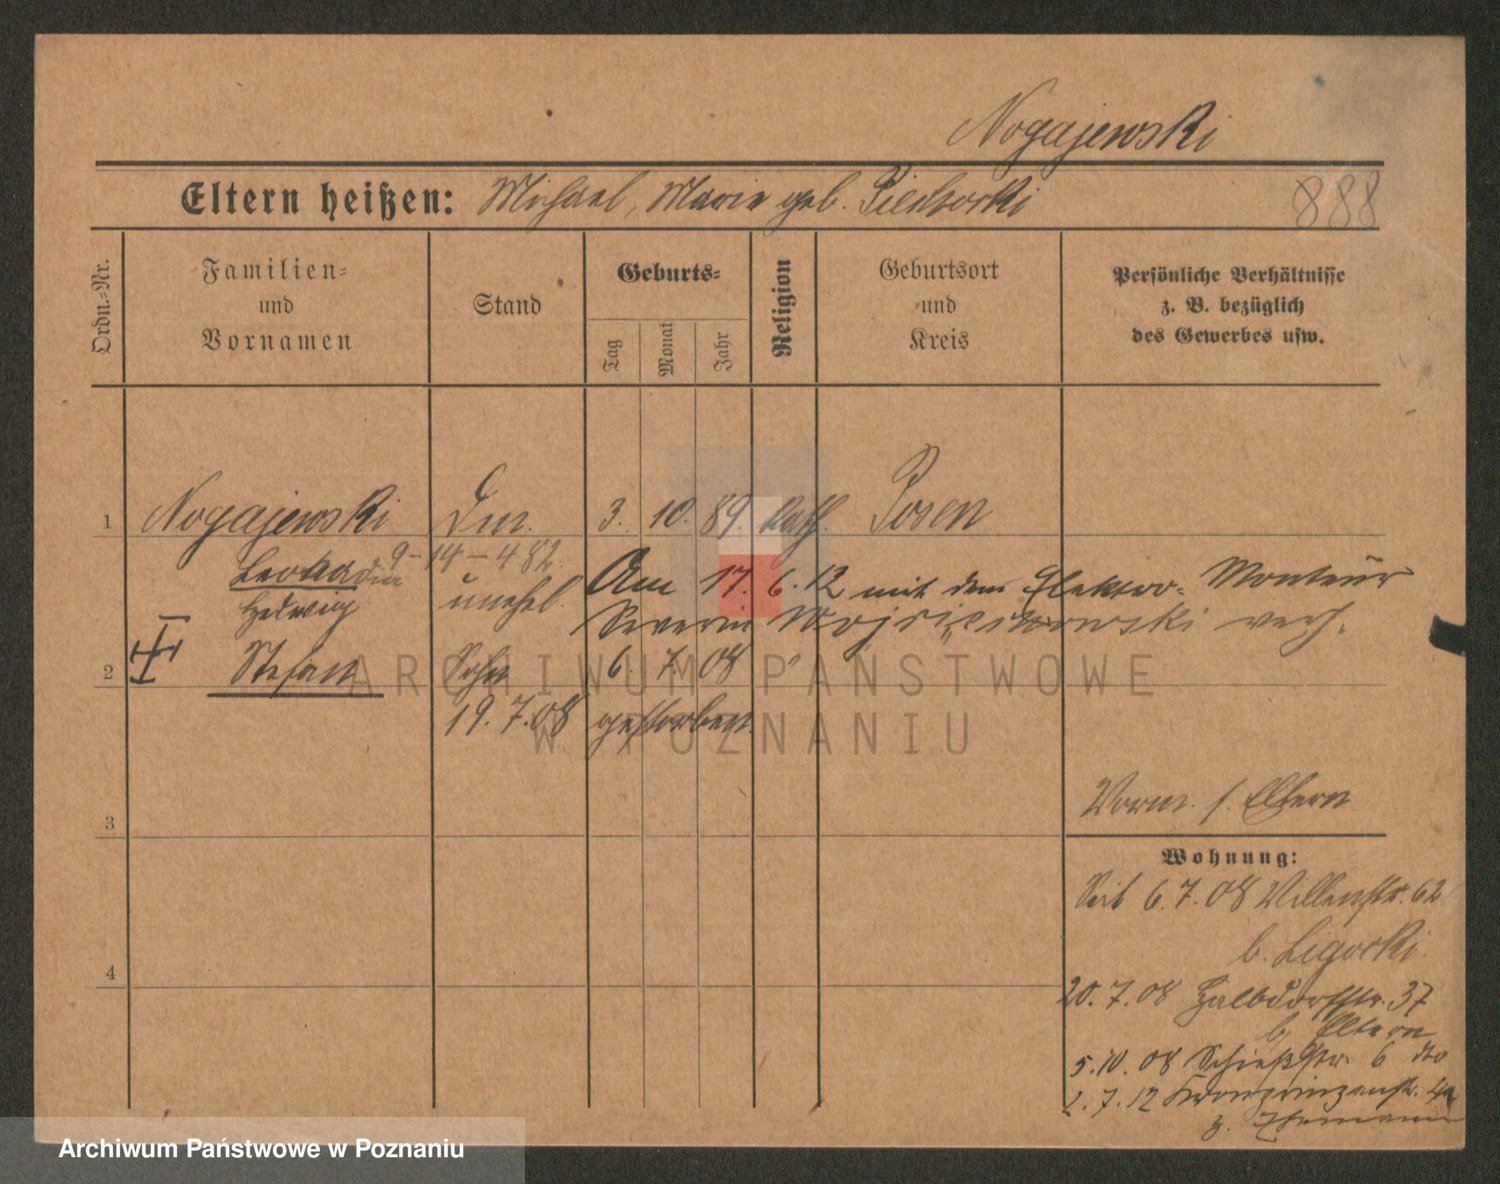 Nogajewski
Eltern heißen: Michael, Marie geb.
888
Ordn.=Nr.
Familien=
und
Vornamen
Stand
Geburts=
Tag
Monat
Jahr
Religion
Geburtsort
und
Kreis
Persönliche Verhältnisse
z. B. bezüglich
des Gewerbes usw.
1 Nogajewski 3. 10. 89. kath. Posen
9-14-482
Leokadia
Hedwig
unehel.
Am 17. 6. 12 mit dem Elektro= Monteur
Severin verh.
2 Stefan Sohn 6. 7. 08
19. 7. 08 gestorben.
ARCHIWUM PAŃSTWOWE
W POZNANIU
3
Vorm. s. Eltern
Wohnung:
Seit 6. 7. 08 62
b. Ligocki.
4
20. 7. 08 Halbdorfstr. 37
b. Eltern
5. 10. 08 Schießstr. 6 dto
1. 7. 12 Kronprinzenstr.
z. Ehemann
Archiwum Państwowe w Poznaniu